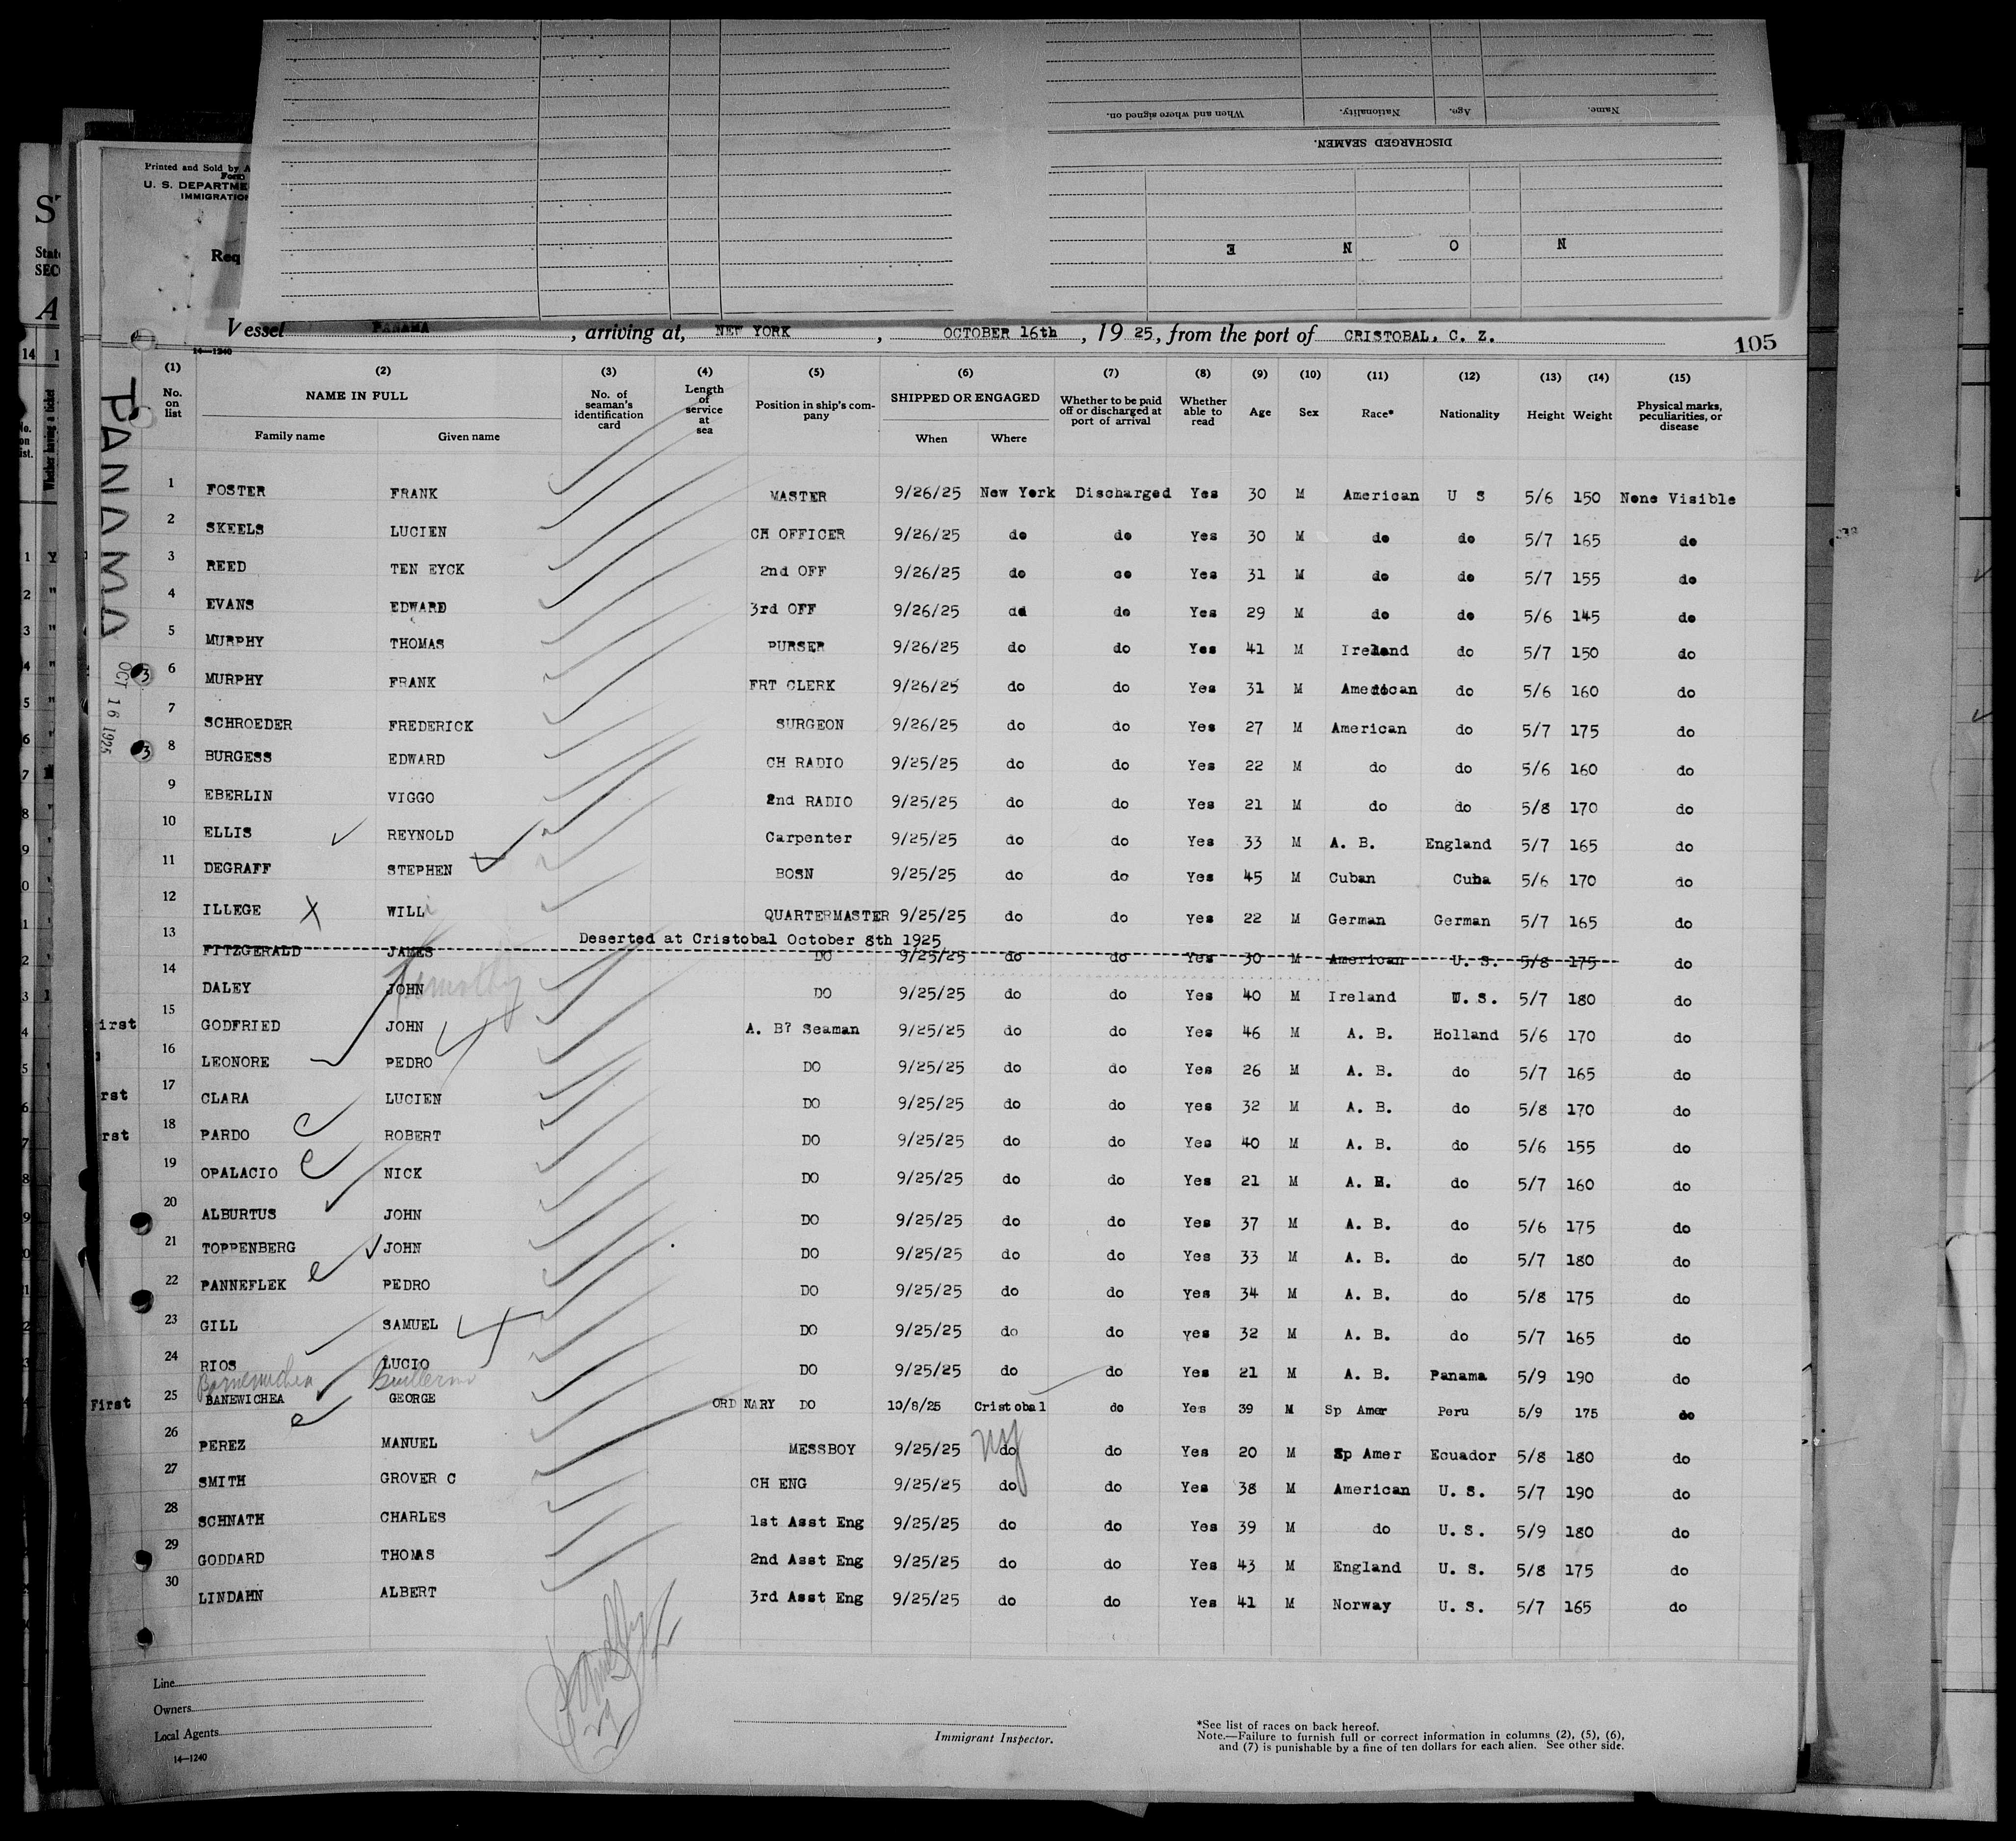 When and where signed on.
Nationality.
Age.
Name.
DISCHARGED SEAMEN.
N O N E
Printed and Sold by A
Form
U. S. DEPARTME
IMMIGRATION
Req
Vessel PANAMA, arriving at, NEW YORK, OCTOBER 16th, 1925, from the port of CRISTOBAL, C. Z.
105
14—1240
PANAMA
OCT 16 1925
(1) (2) (3) (4) (5) (6) (7) (8) (9) (10) (11) (12) (13) (14) (15)
No. on list
NAME IN FULL
Family name Given name
No. of seaman's identification card
Length of service at sea
Position in ship's company
SHIPPED OR ENGAGED
When Where
Whether to be paid off or discharged at port of arrival
Whether able to read
Age Sex Race* Nationality Height Weight
Physical marks, peculiarities, or disease
1 FOSTER FRANK MASTER 9/26/25 New York Discharged Yes 30 M American U S 5/6 150 None Visible
2 SKEELS LUCIEN CH OFFICER 9/26/25 do do Yes 30 M do do 5/7 165 do
3 REED TEN EYCK 2nd OFF 9/26/25 do co Yes 31 M do do 5/7 155 do
4 EVANS EDWARD 3rd OFF 9/26/25 dd do Yes 29 M do do 5/6 145 do
5 MURPHY THOMAS PURSER 9/26/25 do do Yes 41 M Ireland do 5/7 150 do
6 MURPHY FRANK FRT CLERK 9/26/25 do do Yes 31 M American do 5/6 160 do
7 SCHROEDER FREDERICK SURGEON 9/26/25 do do Yes 27 M American do 5/7 175 do
8 BURGESS EDWARD CH RADIO 9/25/25 do do Yes 22 M do do 5/6 160 do
9 EBERLIN VIGGO 2nd RADIO 9/25/25 do do Yes 21 M do do 5/8 170 do
10 ELLIS REYNOLD Carpenter 9/25/25 do do Yes 33 M A. B. England 5/7 165 do
11 DEGRAFF STEPHEN BOSN 9/25/25 do do Yes 45 M Cuban Cuba 5/6 170 do
12 ILLEGE X WILLi QUARTERMASTER 9/25/25 do do Yes 22 M German German 5/7 165 do
Deserted at Cristobal October 8th 1925
13 FITZGERALD JAMES DO 9/25/25 do do Yes 30 M American U. S. 5/8 175 do
Timothy
14 DALEY JOHN DO 9/25/25 do do Yes 40 M Ireland U. S. 5/7 180 do
15 GODFRIED JOHN A. B? Seaman 9/25/25 do do Yes 46 M A. B. Holland 5/6 170 do
16 LEONORE PEDRO DO 9/25/25 do do Yes 26 M A. B. do 5/7 165 do
17 CLARA LUCIEN DO 9/25/25 do do yes 32 M A. B. do 5/8 170 do
18 PARDO ROBERT DO 9/25/25 do do Yes 40 M A. B. do 5/6 155 do
19 OPALACIO NICK DO 9/25/25 do do Yes 21 M A. B. do 5/7 160 do
20 ALBURTUS JOHN DO 9/25/25 do do Yes 37 M A. B. do 5/6 175 do
21 TOPPENBERG JOHN DO 9/25/25 do do Yes 33 M A. B. do 5/7 180 do
22 PANNEFLEK PEDRO DO 9/25/25 do do Yes 34 M A. B. do 5/8 175 do
23 GILL SAMUEL DO 9/25/25 do do yes 32 M A. B. do 5/7 165 do
24 RIOS LUCIO DO 9/25/25 do do Yes 21 M A. B. Panama 5/9 190 do
Guillermo
25 BANEWICHEA GEORGE ORDINARY DO 10/8/25 Cristobal do Yes 39 M Sp Amer Peru 5/9 175 do
26 PEREZ MANUEL MESSBOY 9/25/25 do NY do Yes 20 M Sp Amer Ecuador 5/8 180 do
27 SMITH GROVER C CH ENG 9/25/25 do do Yes 38 M American U. S. 5/7 190 do
28 SCHNATH CHARLES 1st Asst Eng 9/25/25 do do Yes 39 M do U. S. 5/9 180 do
29 GODDARD THOMAS 2nd Asst Eng 9/25/25 do do Yes 43 M England U. S. 5/8 175 do
30 LINDAHN ALBERT 3rd Asst Eng 9/25/25 do do Yes 41 M Norway U. S. 5/7 165 do
First
Line
Owners
Local Agents
14—1240
Immigrant Inspector.
*See list of races on back hereof.
Note.—Failure to furnish full or correct information in columns (2), (5), (6),
and (7) is punishable by a fine of ten dollars for each alien. See other side.